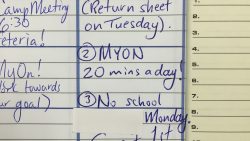 Camp Meeting
6:30
eteria!
MyOn!
towards
ur goal)
(Return sheet
on Tuesday).
② MYON
20 mins a day!
③ No school
Monday.
1st
1.
2.
3.
4.
5.
6.
7.
8.
9.